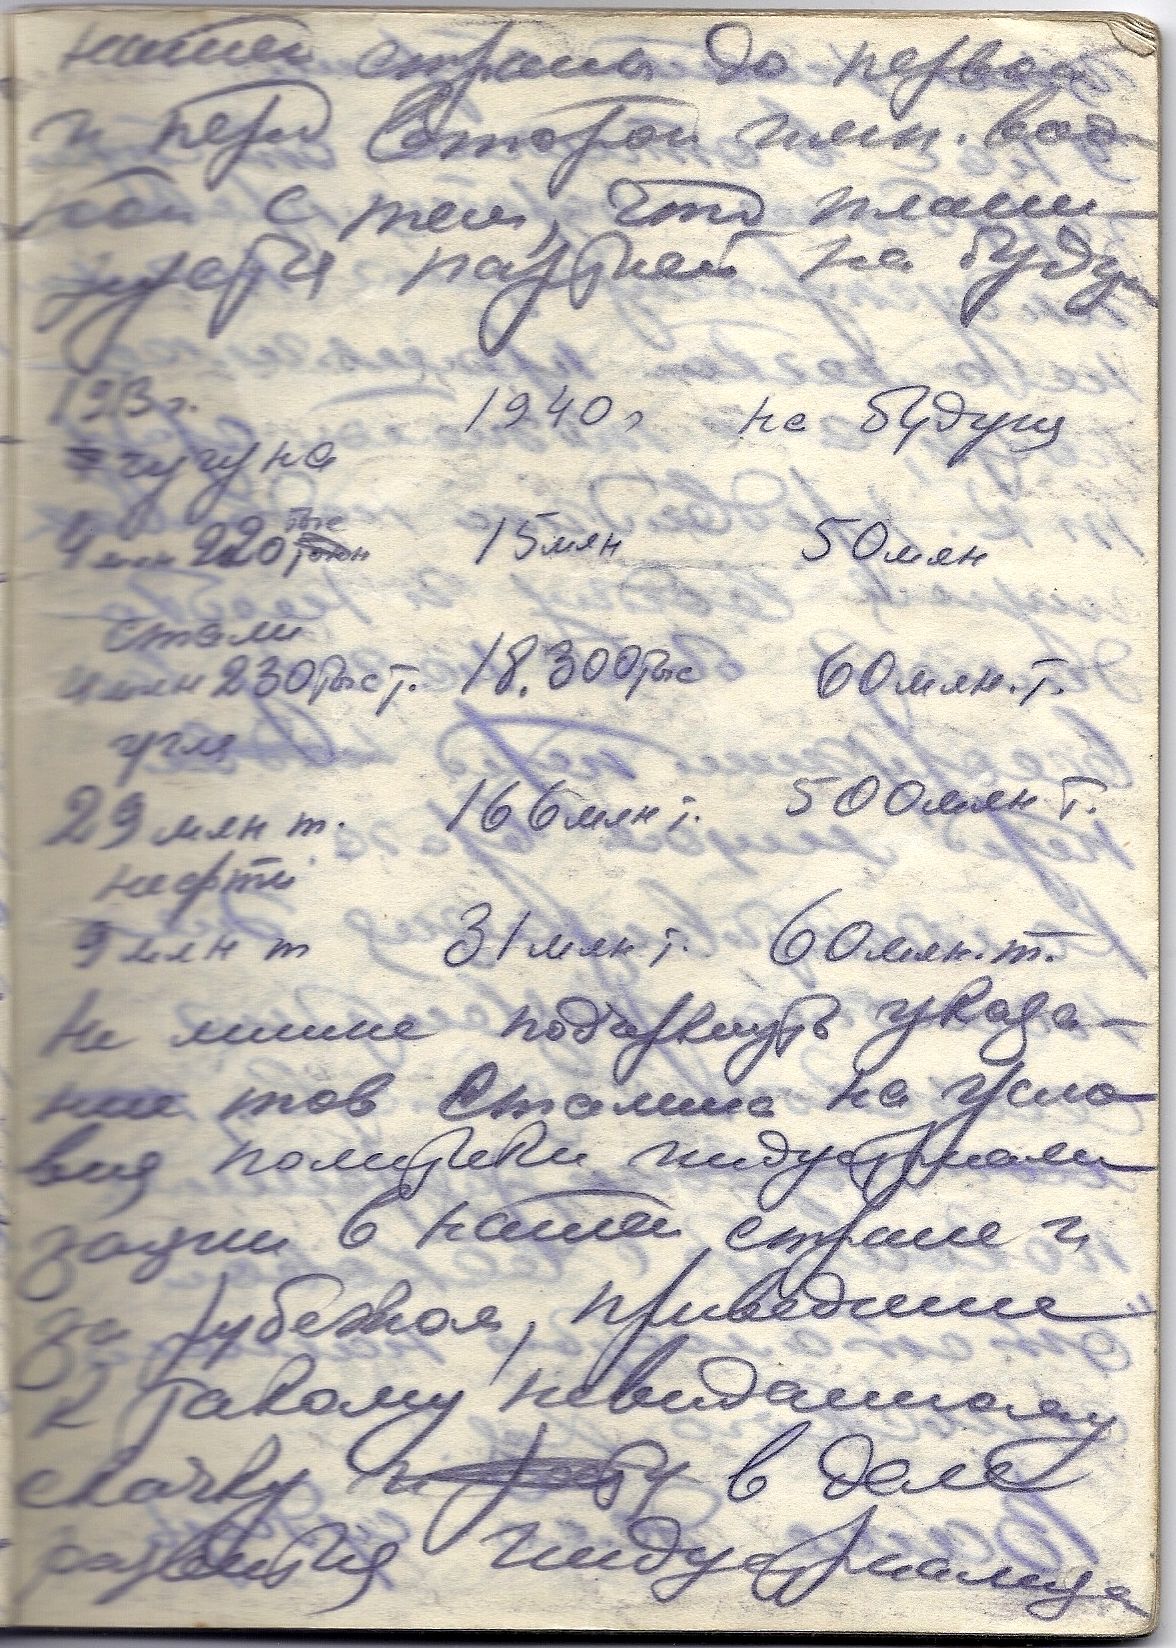 нашей страны до первой
и перед второй имп. вой-
ной с тем, что плани-
руется партией на будущ
1913 г. 1940 г на будущ
чугуна
4 млн 220 тыс 15 млн 50 млн
стали
4 млн 230 тыс т. 18.300 тыс 60 млн. т.
угля
29 млн т. 166 млн т. 500 млн т.
нефти
9 млн т 31 млн т. 60 млн. т.
Не лишне подчеркнуть указа-
ние тов Сталина на усло-
вия политики индустриали-
зации в нашей стране и
за рубежом, приведшие
к такому невиданному
скачку в деле
развития индустриализа